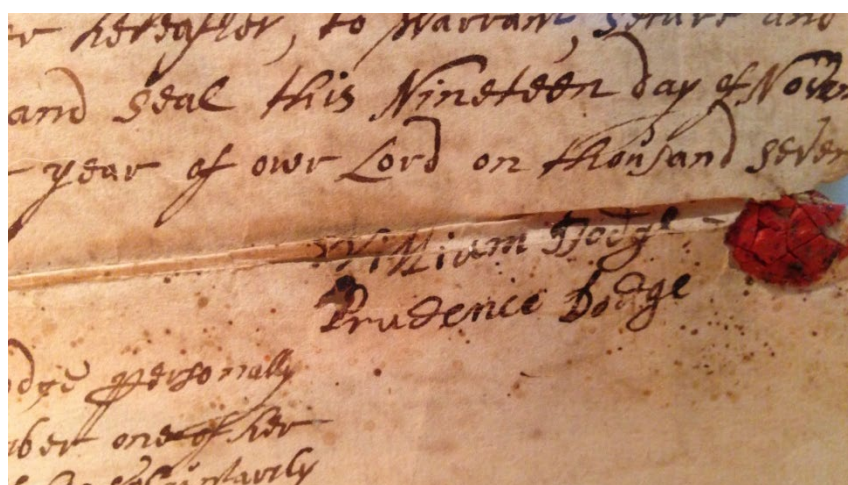 hereafter, to Warrant, secure and
and seal this Nineteen day of Novem
year of owr Lord on thousand seven
William Dodge
Prudence Dodge
odge personally
one of her
voluntarily